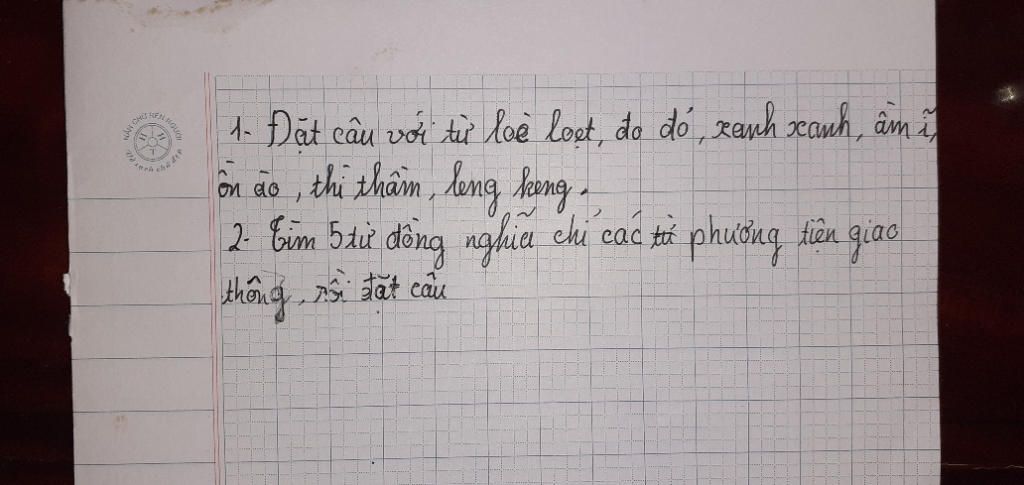 NẮN CHỮ RÈN NGƯỜI
1. Đặt câu với từ loè loẹt, đo đỏ, xanh xanh, ầm ĩ,
ồn ào, thì thầm, leng keng.
2. Tìm 5 từ đồng nghĩa chỉ các từ phương tiện giao
thông, rồi đặt câu